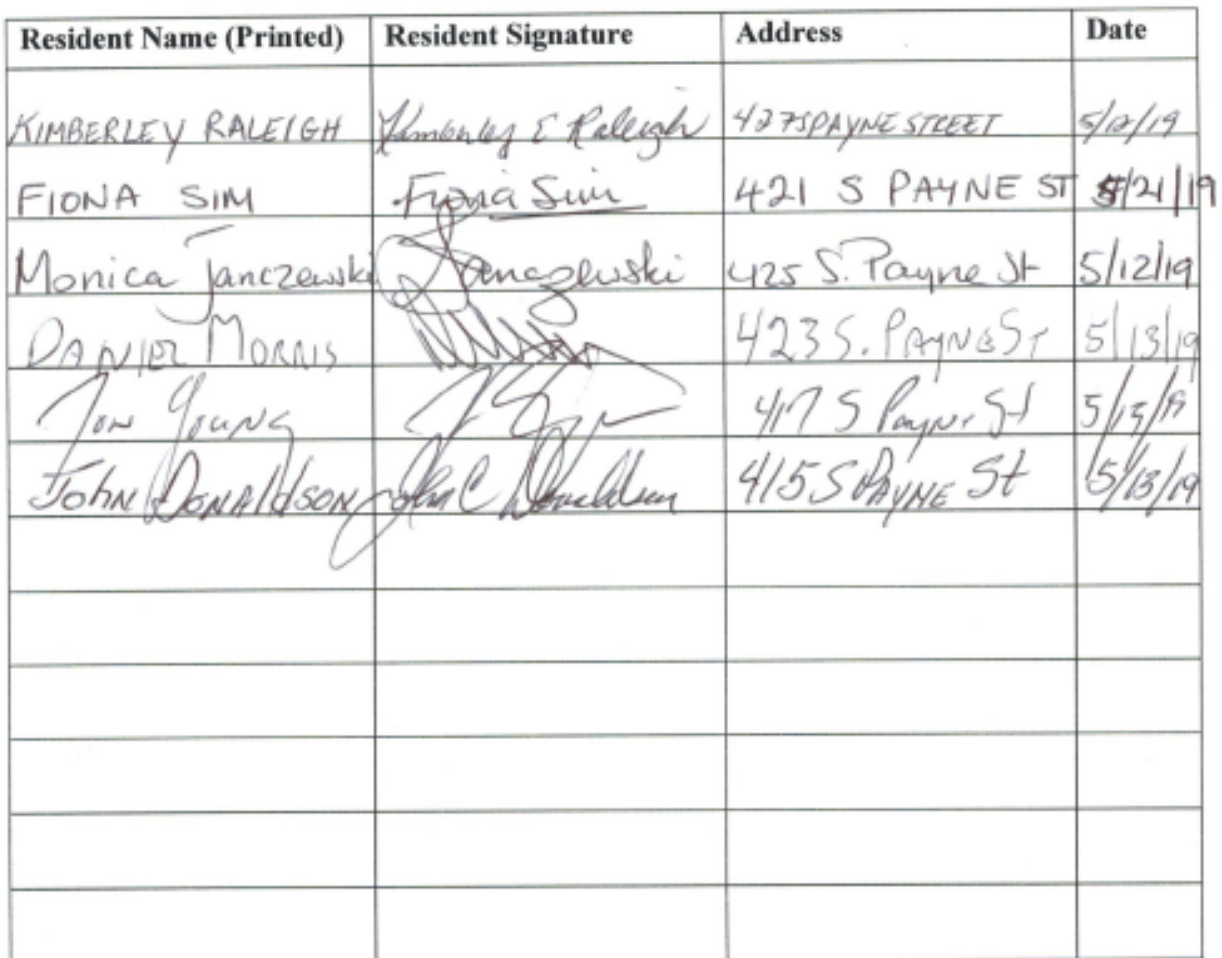 Resident Name (Printed) Resident Signature Address Date
KIMBERLEY RALEIGH Kimberley E Raleigh 427 S PAYNE STREET 5/12/19
FIONA SIM Fiona Sim 421 S PAYNE ST 5/21/19
Monica Janczewski Janczewski 425 S. Payne St 5/12/19
DANIEL MORRIS 423 S. PAYNE ST 5/13/19
Jon Young 417 S Payne St
John DONAldSON John C Donaldson 415 S PAYNE St 5/13/19